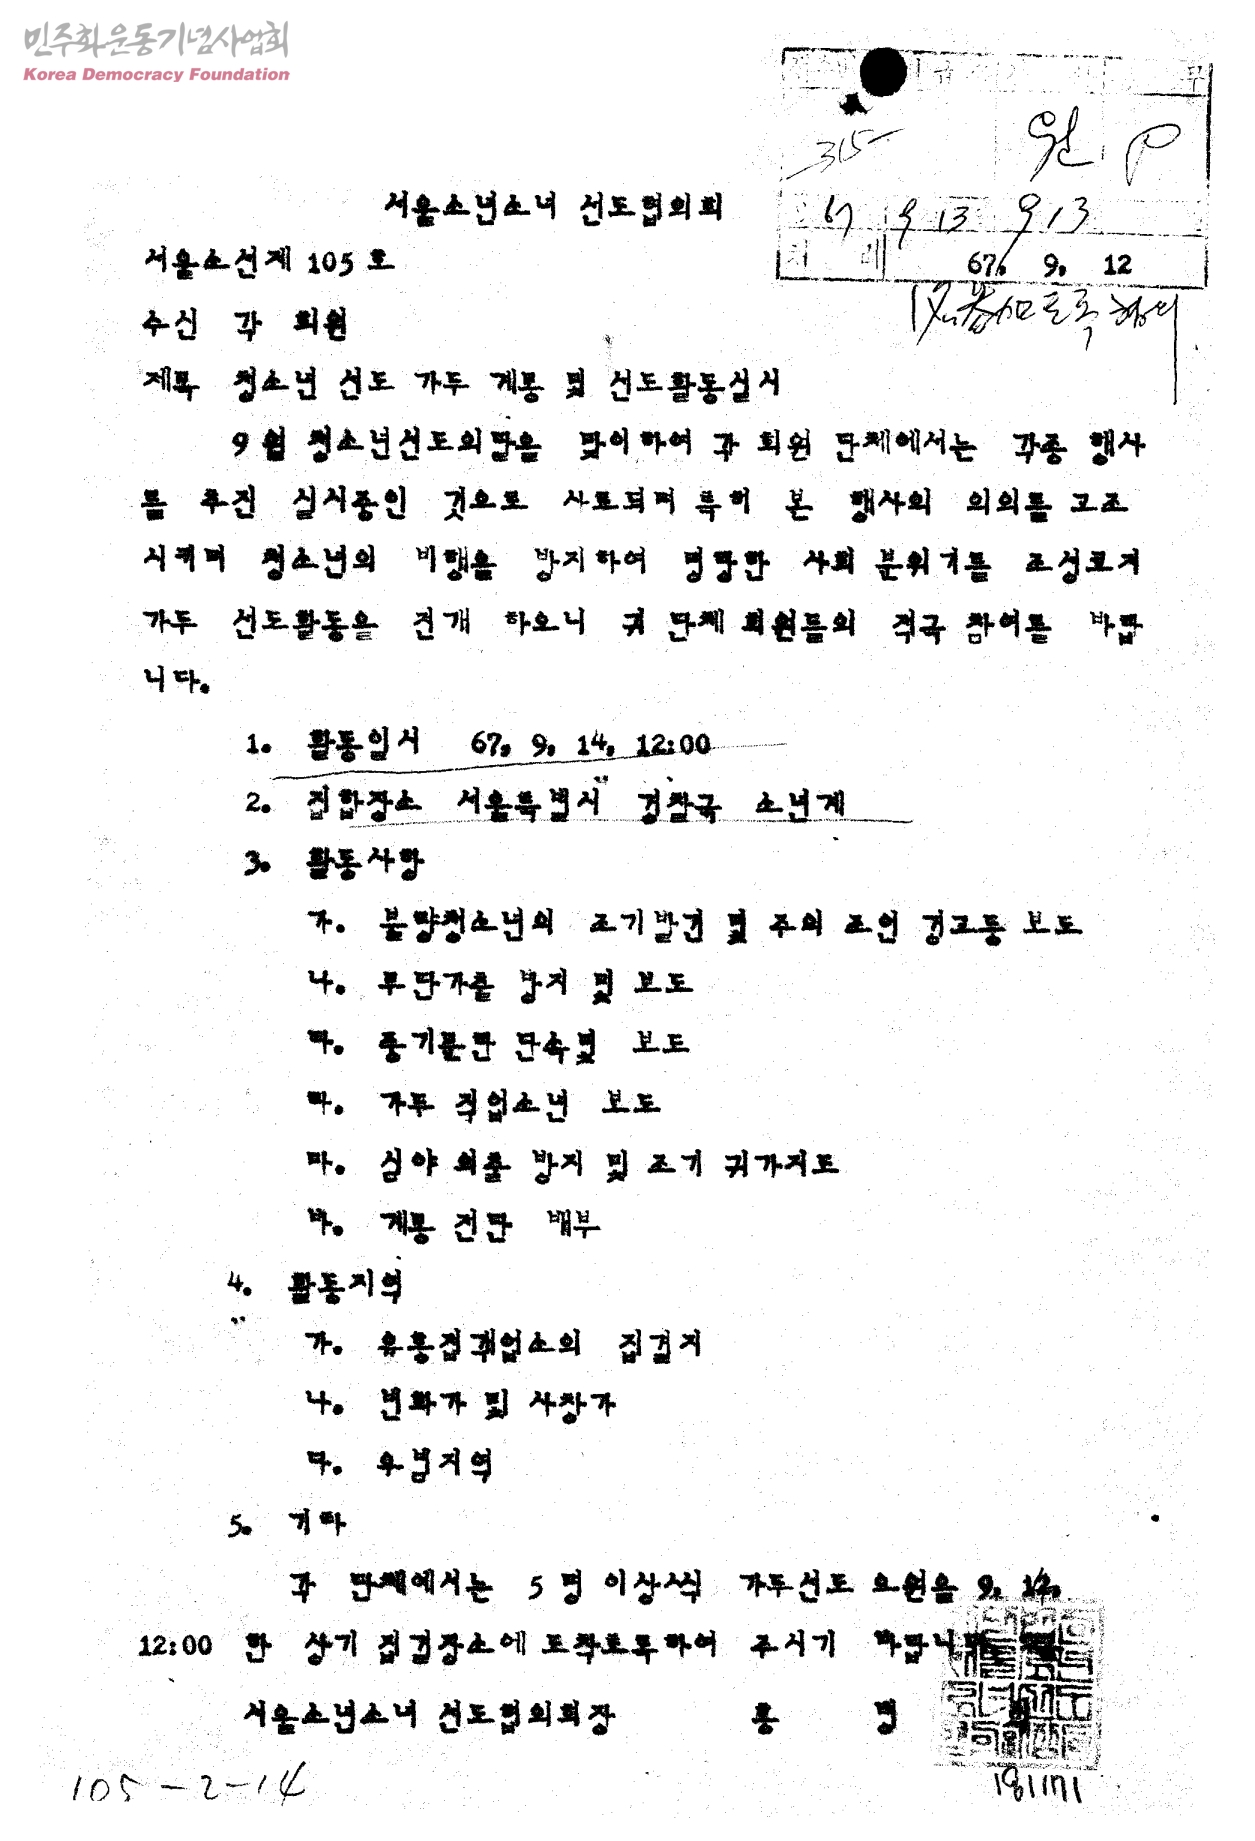 민주화운동기념사업회
Korea Democracy Foundation
315
원
67 9 13 9/13
처 67. 9. 12
서울소년소녀 선도협의회
서울소선제 105 호
수신 각 회원
제목 청소년 선도 가두 계몽 및 선도활동실시
9 월 청소년선도의달을 맞이하여 각 회원 단체에서는 각종 행사
를 추진 실시중인 것으로 사료되며 특히 본 행사의 의의를 고조
시키며 청소년의 비행을 방지하여 명랑한 사회 분위기를 조성코저
가두 선도활동을 전개 하오니 귀 단체 회원들의 적극 참여를 바랍
니다.
1. 활동일시 67. 9. 14. 12:00
2. 집합장소 서울특별시 경찰국 소년계
3. 활동사항
가. 불량청소년의 조기발견 및 주의 조언 경고등 보도
나. 무단가출 방지 및 보도
다. 풍기문란 단속및 보도
라. 가두 직업소년 보도
마. 심야 외출 방지 및 조기 귀가지도
바. 계몽 전단 배부
4. 활동지역
가. 유흥접객업소의 집결지
나. 번화가 및 사창가
다. 우범지역
5. 기타
각 단체에서는 5 명 이상씩 가두선도 요원을 9. 14.
12:00 한 상기 집결장소에 도착토록하여 주시기 바랍니다
서울소년소녀 선도협의회장 홍 명
105-2-14